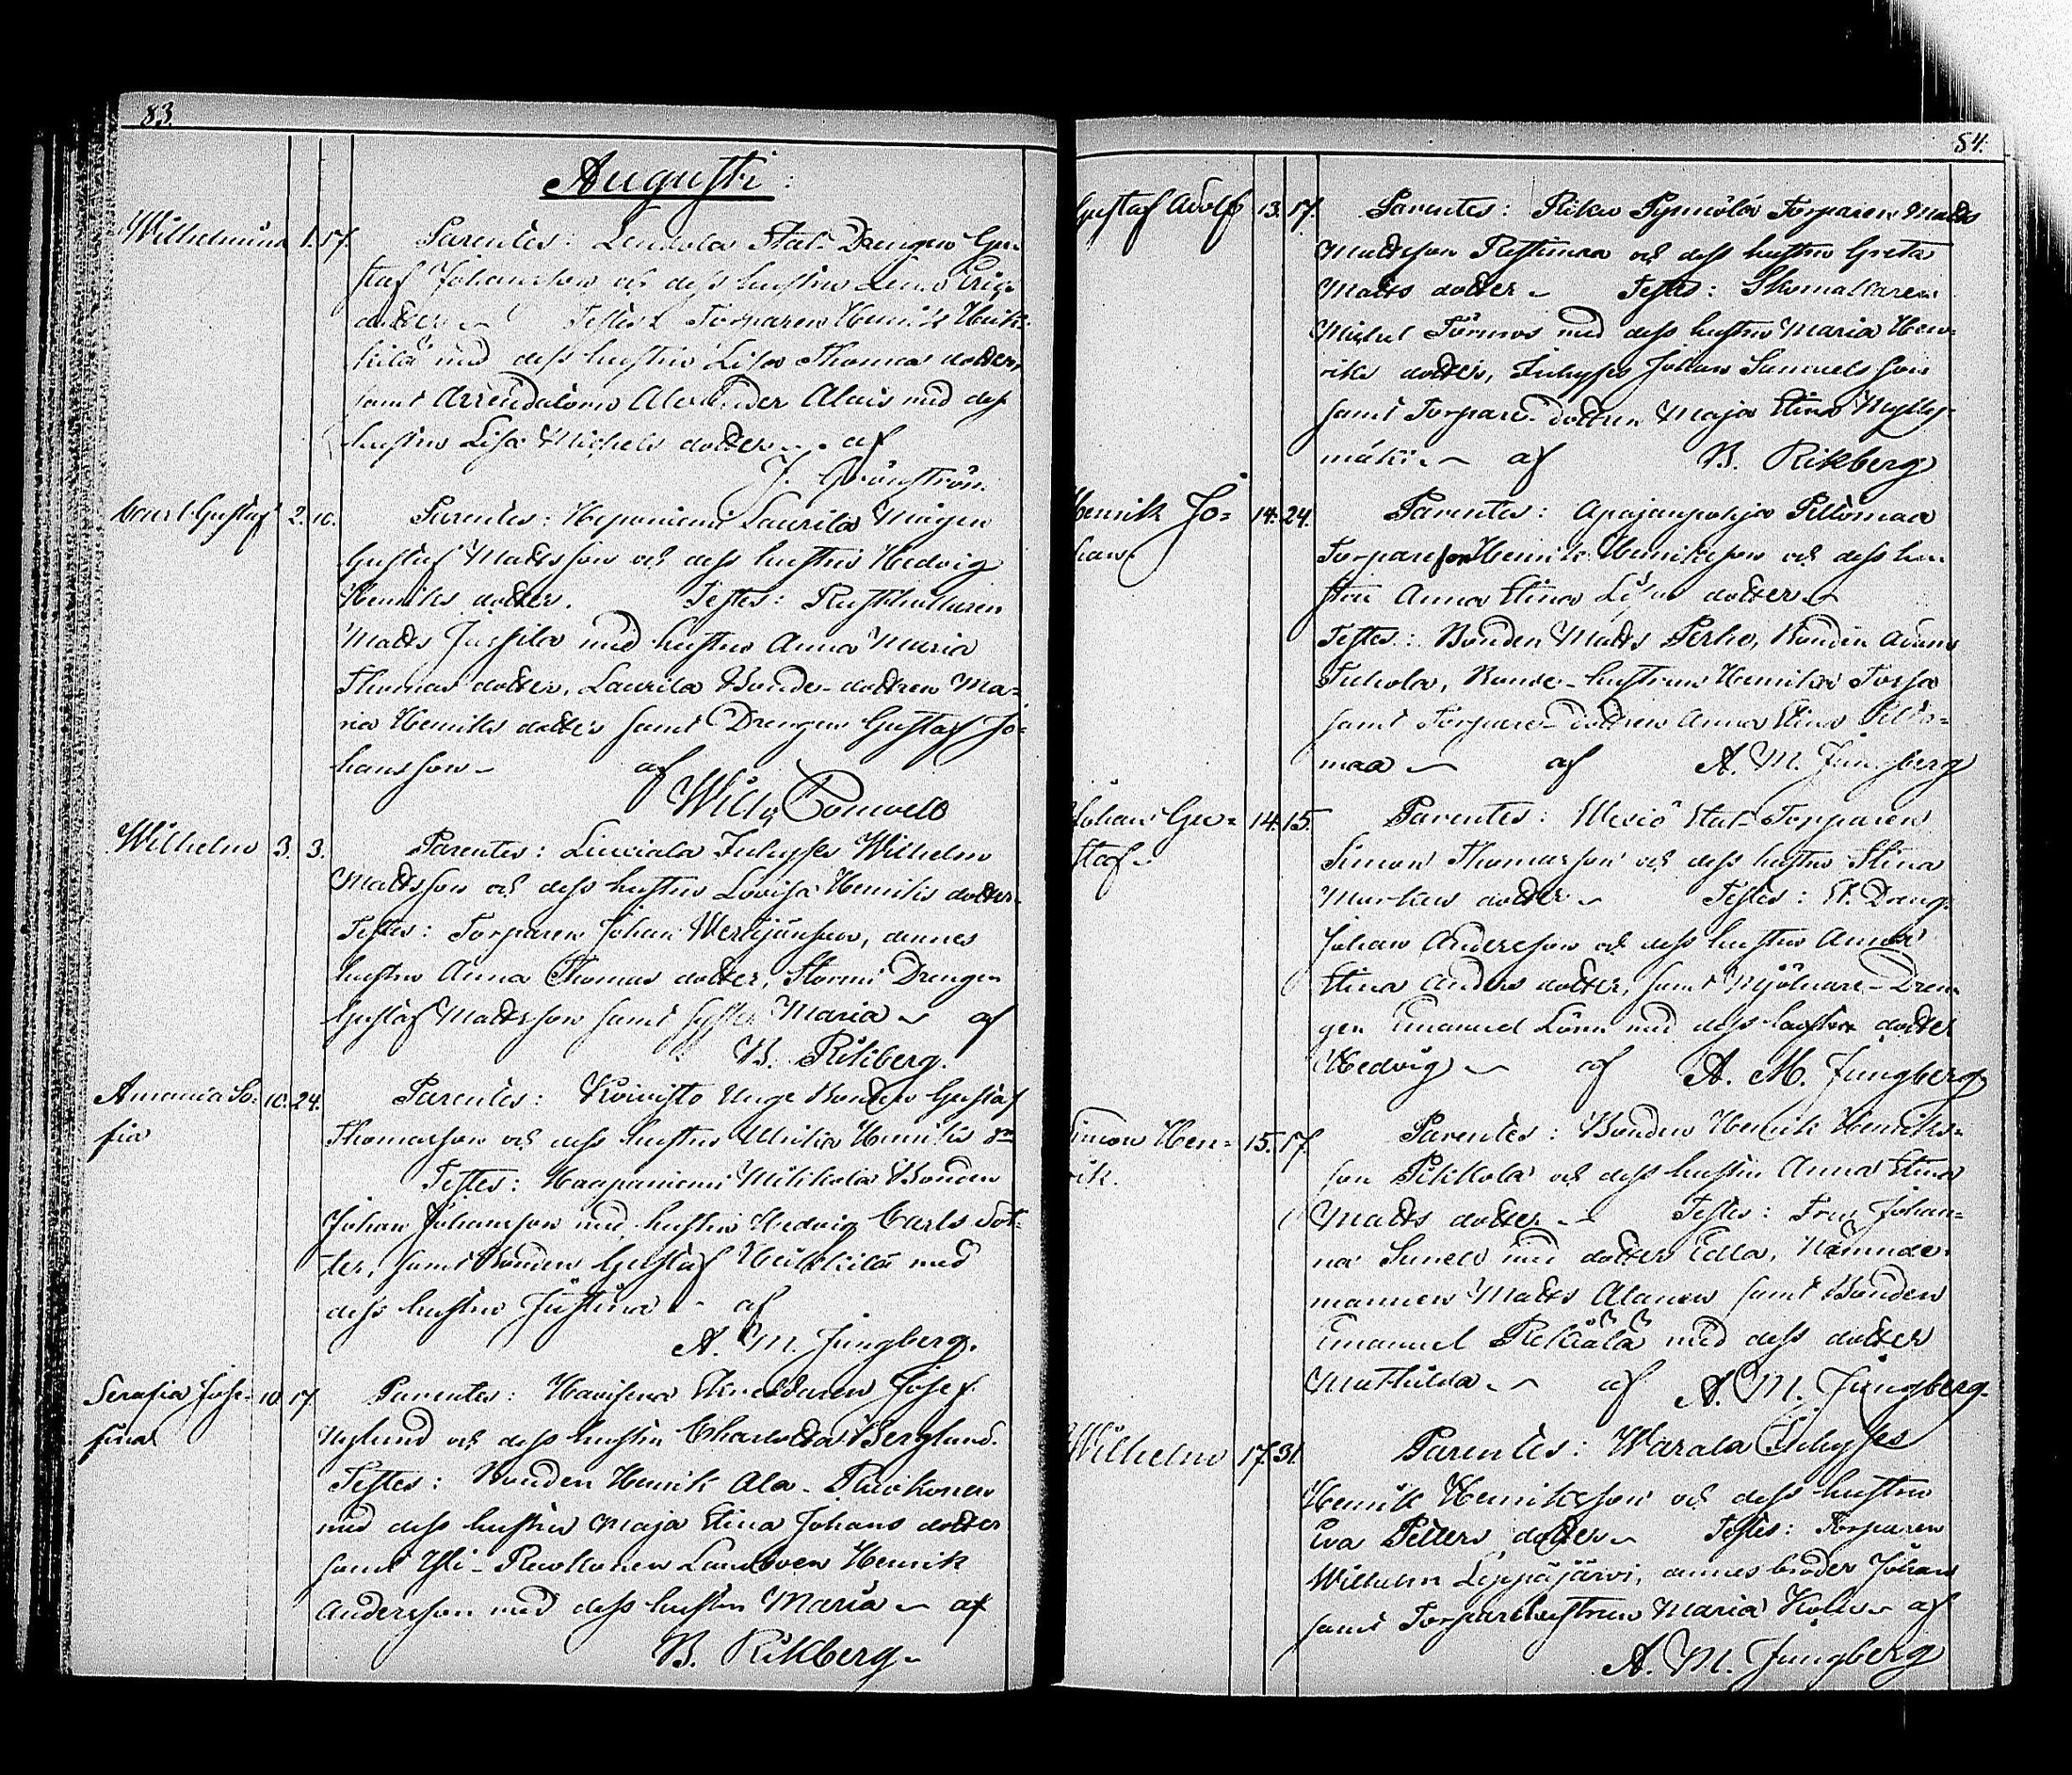 83.
Augusti:
Wilhelmina 1. 17. Parentes: Stat-Drengen Gu-
staf Johansson och dess hustru Lena Eriks
dotter Testes: Torparen Henrik Heik-
kilä med dess hustru Lisa Thomas dotter,
samt Arrendatorn Alexander Alais med dess
hustru Lisa Michels dotter af
J. Grönström.
Carl Gustaf 2. 10. Parentes: Laurila Mågen
Gustaf Mattsson och dess hustru Hedvig
Henriks dotter. Testes: Rusthållaren
Matts Jussila med hustru Anna Maria
Thomas dotter, Laurila Bonde-dottren Ma-
ria Henriks dotter samt Drengen Gustaf Jo-
hansson af
Wilh.
Wilhelm 3. 3. Parentes: Inhyses Wilhelm
Mattsson och dess hustru Lovisa Henriks dotter
Testes: Torparen Johan, dennes
hustru Anna Thomas dotter, Stormi Drengen
Gustaf Mattsson samt syster Maria af
B. Rikberg.
Amanda So- 10. 24. Parentes: Koivisto Unge Bonden Gustaf
fia Thomasson och dess hustru Ulrika Henriks dr
Testes: Haapaniemi Mikkola Bonden
Johan Johansson med hustru Hedvig Carls dot-
ter, samt Bonden Gustaf Heikkilä med
dess hustru Justina af
A. M. Jungberg.
Serafia Jose- 10. 17. Parentes: Skreddaren Josef
fina Nylund och dess hustru Charlotta Berglund.
Testes: Bonden Henrik Ala-
med dess hustru Maja Stina Johans dotter
samt Yli- Landbon Henrik
Andersson med dess hustru Maria af
B. Rikberg
84.
Gustaf Adolf 13. 17. Parentes: Torparen Matts
Mattsson och dess hustru Greta
Matts dotter Testes: Skomakaren
Michel Törnros med dess hustru Maria Hen-
riks dotter, Inhyses Johan Samuelsson
samt Torpare-dottren Maja Stina Mylly-
mäki af B. Rikberg
Henrik Jo- 14. 24. Parentes: Apajanpohja Peltomaa
han Torparesson Henrik Henriksson och dess hu-
stru Anna Stina dotter
Testes: Bonden Matts Perho, Bonden Adam
Bonde-hustrun Henrika
samt Torpare-dottren Anna Stina Pelto-
maa af A. M. Jungberg
Johan Gu- 14. 15. Parentes: Wesiö Stat-Torparen
staf Simon Thomasson och dess hustru Stina
Markus dotter Testes: St. Dreng.
Johan Andersson och dess hustru Anna
Stina Anders dotter, samt Mjölnare-Dren-
gen Emanuel Lönn med dess dotter
Hedvig af A. M. Jungberg
Simon Hen- 15. 17. Parentes: Bonden Henrik Henriks-
rik. son och dess hustru Anna Stina
Matts dotter Testes: Fru Johan-
na med dotter Edla, Nämnde-
mannen Matts Alanen samt Bonden
Emanuel med dess dotter
Mathilda af A. M. Jungberg
Wilhelm 17. 31. Parentes: Warala Inhyses
Henrik Henriksson och dess hustru
Eva Petters dotter Testes: Torparen
Wilhelm Leppäjärvi, dennes broder Johan
samt Torparehustrun Maria af
A. M. Jungberg